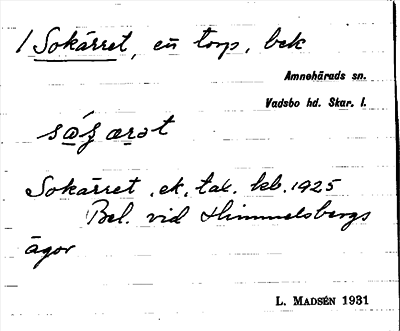 1 Sokärret, en torp, bek
Amnehärads sn.
Vadsbo hd. Skar. l.
Sokärret, ek. tak. kb. 1925
Bel. vid Himmelsbergs
ägor
L. MADSÉN 1931